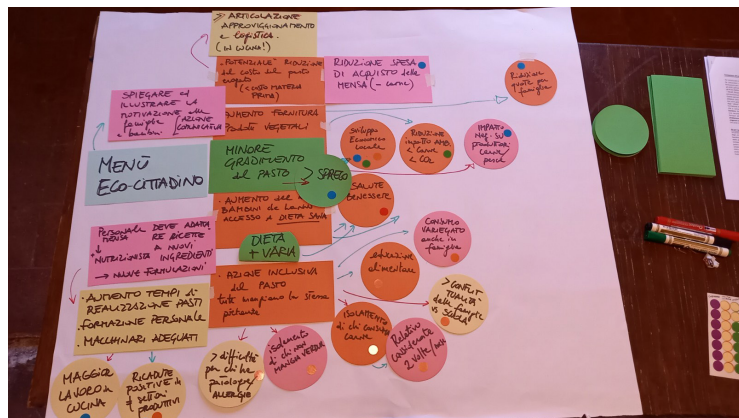 > ARTICOLAZIONE
APPROVIGGIONAMENTO
e logistica.
(IN CUCINA!)
- POTENZIALE RIDUZIONE
del costo del pasto
(< COSTO MATERIA
PRIMA)
RIDUZIONE SPESA
DI ACQUISTO della
MENSA (- carne)
Riduzione
quote per
famiglie
SPIEGARE ed
ILLUSTRARE LA
MOTIVAZIONE alle
famiglie
e bambini.
(AZIONE
COMUNICATIVA)
AUMENTO FORNITURA
Prodotti VEGETALI
Sviluppo
Economico
Locale
RIDUZIONE
IMPATTO AMB.
< Carne
< CO2
IMPATTO
Neg. SU
PRODUTTORI
carne
pesce
MENÙ
ECO-CITTADINO
MINORE
GRADIMENTO
del PASTO
> SPRECO
SALUTE
BENESSERE
- AUMENTO DEI
BAMBINI che hanno
ACCESSO A DIETA SANA
PERSONALE DEVE ADATTARE
MENSA RE RICETTE
A NUOVI
NUTRIZIONISTA INGREDIENTI
→ NUOVE FORMULAZIONI
DIETA
+ VARIA
CONSUMO
VARIEGATO
anche in
famiglia
educazione
alimentare
- AZIONE INCLUSIVA
DEL PASTO
tutti mangiano la stessa
pietanza
> CONFLIT
TUALITÀ
delle famiglie
vs SCUOLA
- AUMENTO TEMPI di
REALIZZAZIONE PASTI
- FORMAZIONE PERSONALE
- MACCHINARI ADEGUATI
ISOLAMENTO
di chi consuma
carne
Relativo
considerate
2 volte/
isolamento
di chi non
MANGIA VERDURE
> difficoltà
per chi ha
patologie/
ALLERGIE
MAGGIOR
LAVORO in
CUCINA
RICADUTE
POSITIVE in
≠ SETTORI
PRODUTTIVI